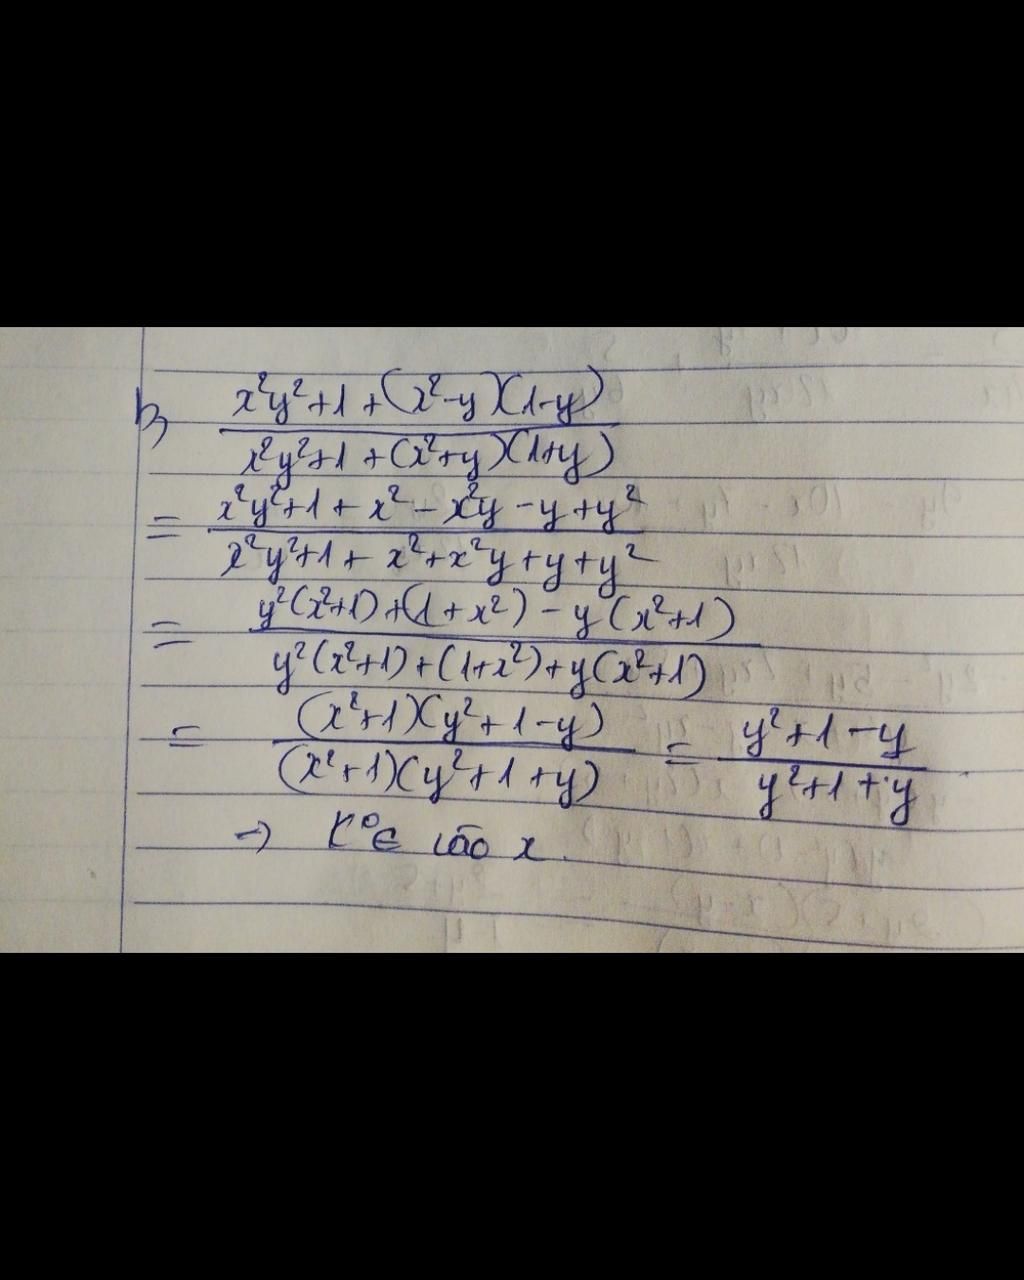 b,
x²y²+1+(x²-y)(1-y)
x²y²+1+(x²+y)(1+y)
= x²y²+1+x²-x²y-y+y²
x²y²+1+x²+x²y+y+y²
= y²(x²+1)+(1+x²)-y(x²+1)
y²(x²+1)+(1+x²)+y(x²+1)
= (x²+1)(y²+1-y) = y²+1-y
(x²+1)(y²+1+y) y²+1+y
→ K°∈ vào x.